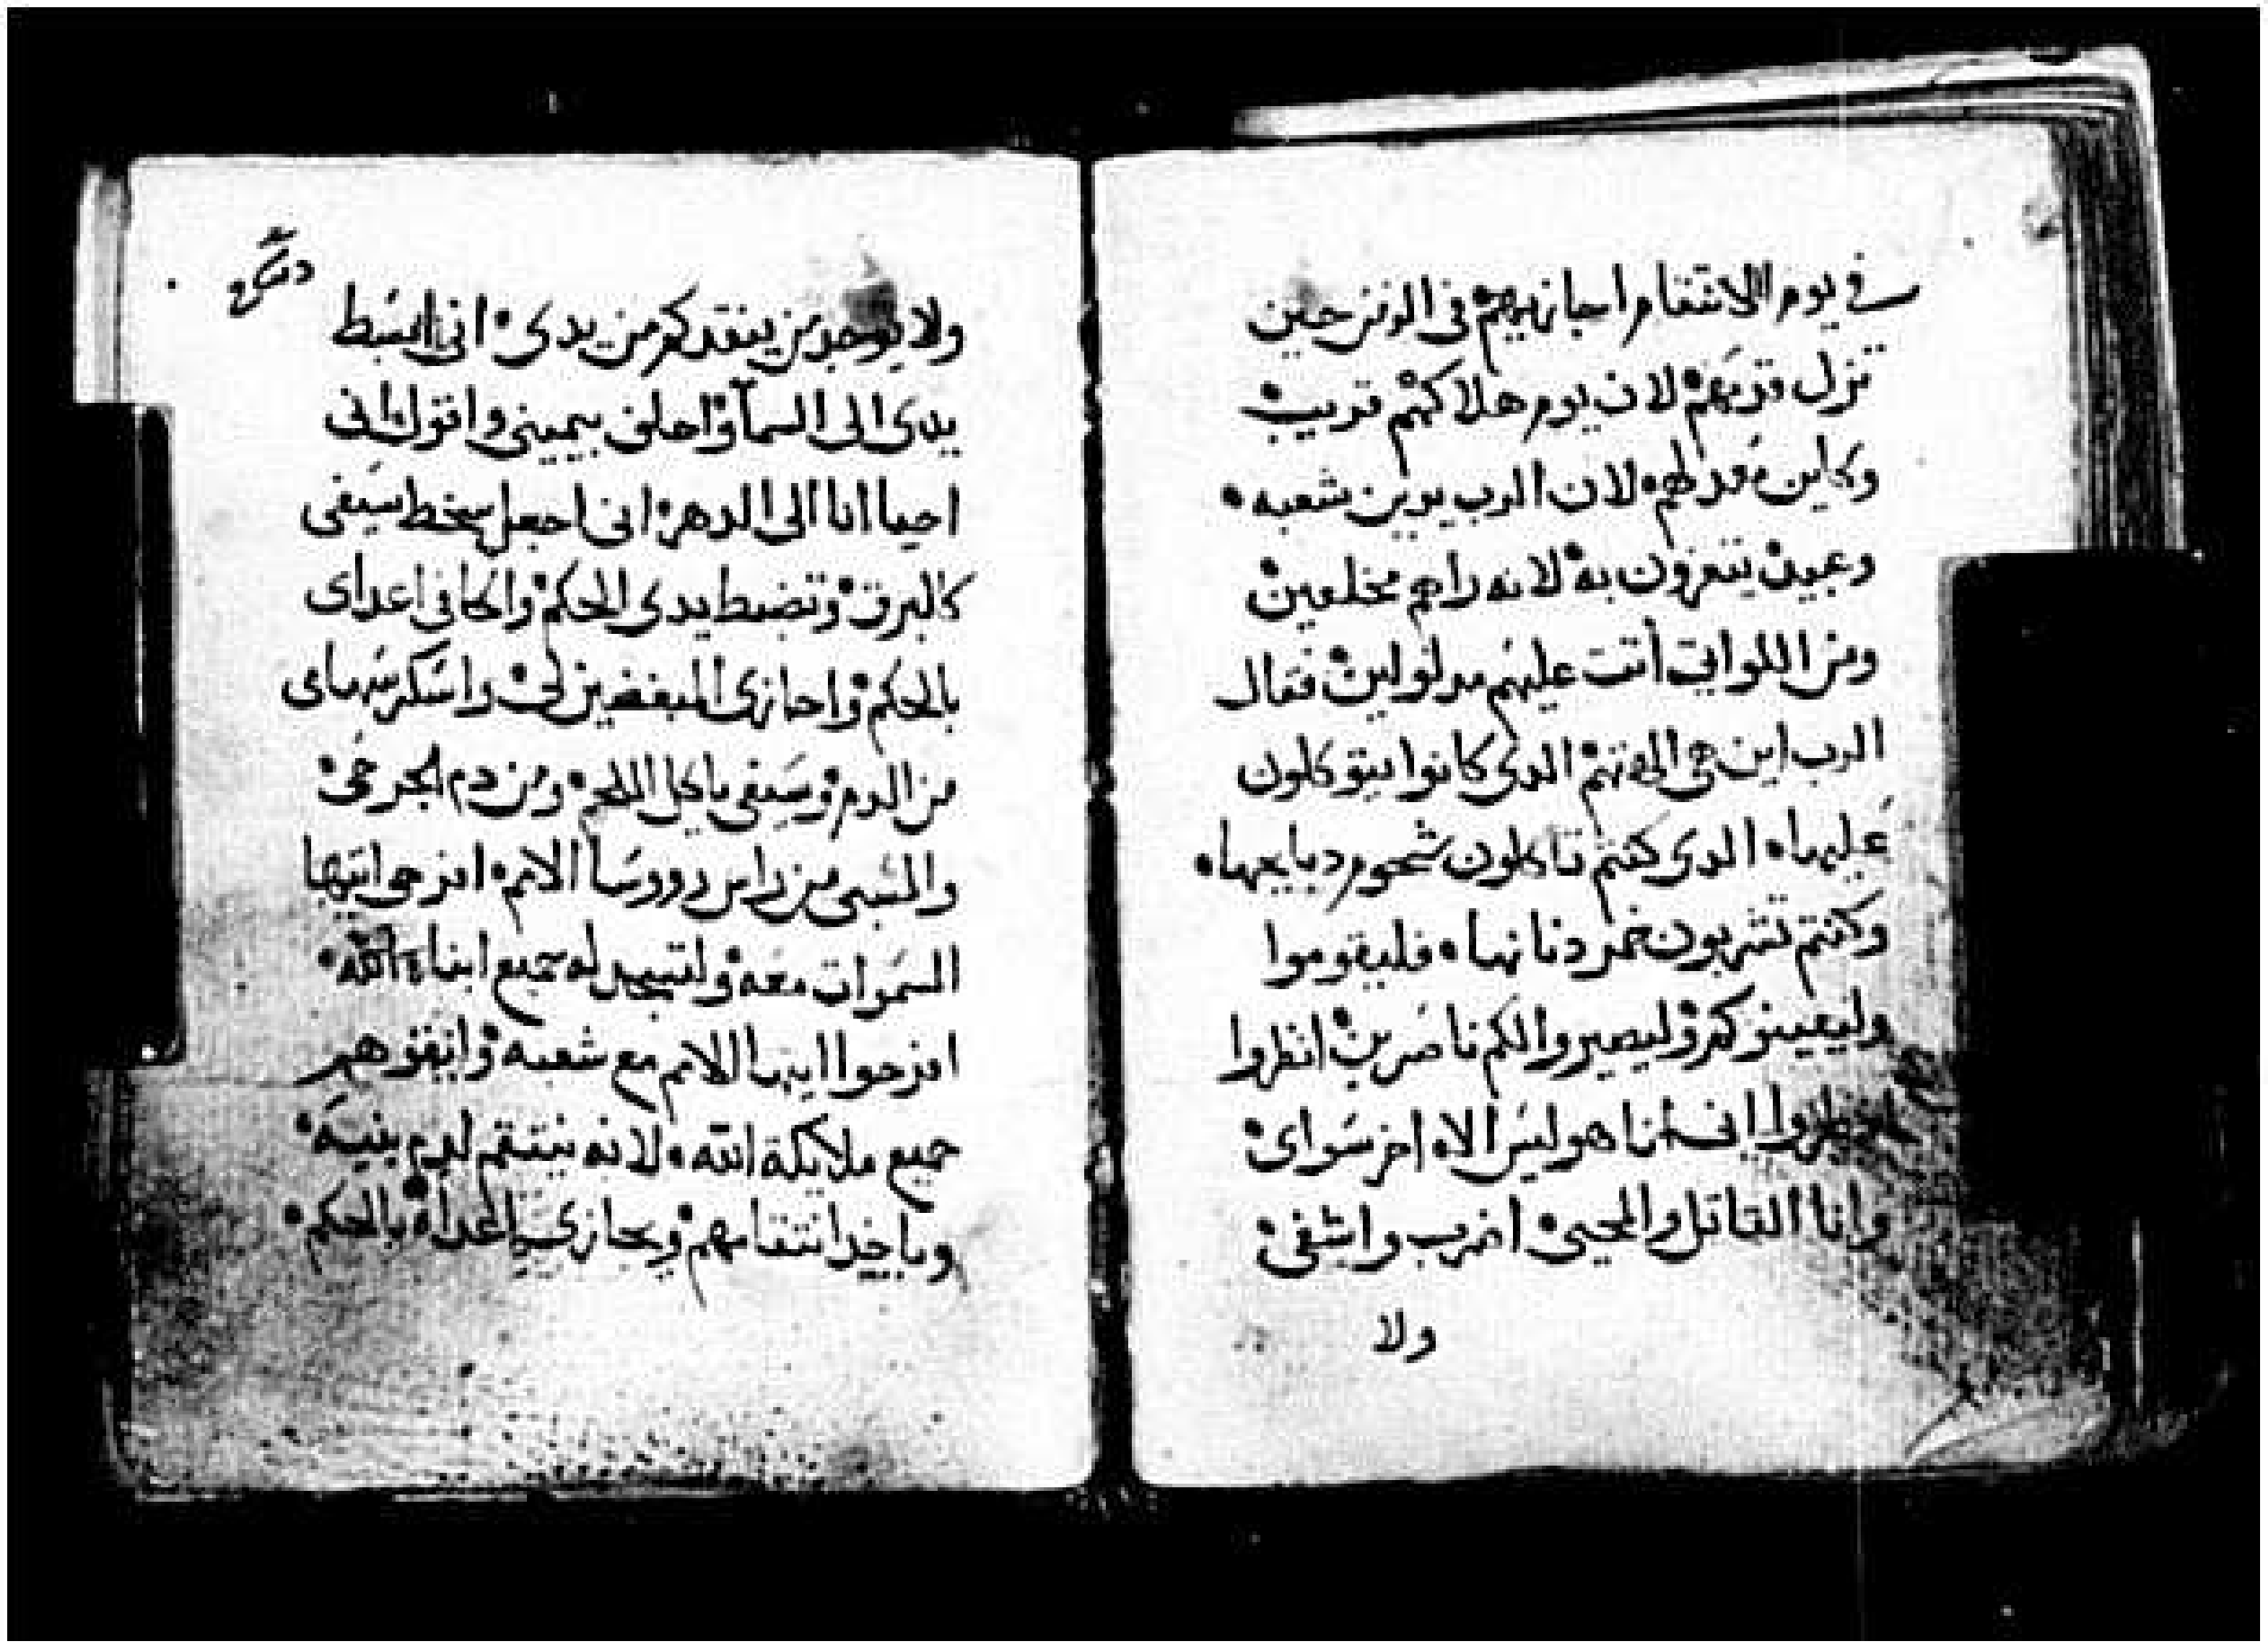 في يوم الانتقام اجازيهم في الزمن حين
تزل قدمهم لان يوم هلاكهم قريب
وكاين معد لهم لان الرب يدين شعبه
وعبيده يتعزون به لانه راهم مخلعين
ومن اللواتي أتت عليهم مدلولين فقال
الرب اين هي الهتهم الدي كانوا يتوكلون
عليها الدي كنتم تاكلون شحوم دبايحها
وكنتم تشربون خمر دنانها فليقوموا
وليعينوكم وليصيروا لكم ناصرين انظروا
انظروا اني انا هو وليس الاه اخر سواى
وانا القاتل والمحيى اضرب واشفى
ولا
ولا يوجد من ينقدكم من يدى انى ابسط
يدى الى السما واحلف بيمينى واقول انى
احيا انا الى الدهر انى اجعل سخط سيفى
كالبرق وتضبط يدى الحكم واكافى اعداى
بالحكم واجازى المبغضين لى واسكر سهامى
من الدم وسيفى ياكل اللحم ومن دم الجرحى
والسبى من راس رووسا الامم افرحوا ايتها
السموات معه ولتسجد له جميع ابنا الله
افرحوا ايتها الامم مع شعبه وليقوهم
جميع ملايكة الله لانه ينتقم لدم بنيه
وياخد انتقامهم ويجازى اعداه بالحكم